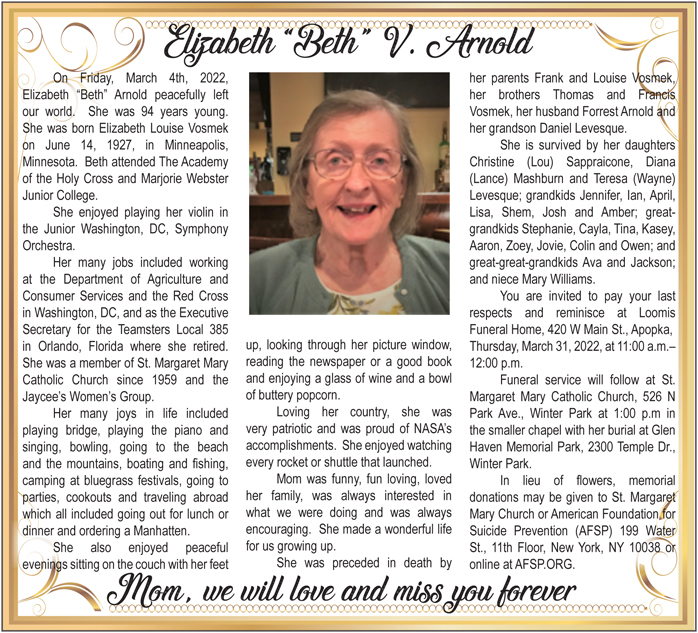 Elizabeth “Beth” V. Arnold
On Friday, March 4th, 2022,
Elizabeth “Beth” Arnold peacefully left
our world. She was 94 years young.
She was born Elizabeth Louise Vosmek
on June 14, 1927, in Minneapolis,
Minnesota. Beth attended The Academy
of the Holy Cross and Marjorie Webster
Junior College.
She enjoyed playing her violin in
the Junior Washington, DC, Symphony
Orchestra.
Her many jobs included working
at the Department of Agriculture and
Consumer Services and the Red Cross
in Washington, DC, and as the Executive
Secretary for the Teamsters Local 385
in Orlando, Florida where she retired.
She was a member of St. Margaret Mary
Catholic Church since 1959 and the
Jaycee’s Women’s Group.
Her many joys in life included
playing bridge, playing the piano and
singing, bowling, going to the beach
and the mountains, boating and fishing,
camping at bluegrass festivals, going to
parties, cookouts and traveling abroad
which all included going out for lunch or
dinner and ordering a Manhatten.
She also enjoyed peaceful
evenings sitting on the couch with her feet
up, looking through her picture window,
reading the newspaper or a good book
and enjoying a glass of wine and a bowl
of buttery popcorn.
Loving her country, she was
very patriotic and was proud of NASA’s
accomplishments. She enjoyed watching
every rocket or shuttle that launched.
Mom was funny, fun loving, loved
her family, was always interested in
what we were doing and was always
encouraging. She made a wonderful life
for us growing up.
She was preceded in death by
her parents Frank and Louise Vosmek,
her brothers Thomas and Francis
Vosmek, her husband Forrest Arnold and
her grandson Daniel Levesque.
She is survived by her daughters
Christine (Lou) Sappraicone, Diana
(Lance) Mashburn and Teresa (Wayne)
Levesque; grandkids Jennifer, Ian, April,
Lisa, Shem, Josh and Amber; great-
grandkids Stephanie, Cayla, Tina, Kasey,
Aaron, Zoey, Jovie, Colin and Owen; and
great-great-grandkids Ava and Jackson;
and niece Mary Williams.
You are invited to pay your last
respects and reminisce at Loomis
Funeral Home, 420 W Main St., Apopka,
Thursday, March 31, 2022, at 11:00 a.m.–
12:00 p.m.
Funeral service will follow at St.
Margaret Mary Catholic Church, 526 N
Park Ave., Winter Park at 1:00 p.m in
the smaller chapel with her burial at Glen
Haven Memorial Park, 2300 Temple Dr.,
Winter Park.
In lieu of flowers, memorial
donations may be given to St. Margaret
Mary Church or American Foundation for
Suicide Prevention (AFSP) 199 Water
St., 11th Floor, New York, NY 10038 or
online at AFSP.ORG.
Mom, we will love and miss you forever